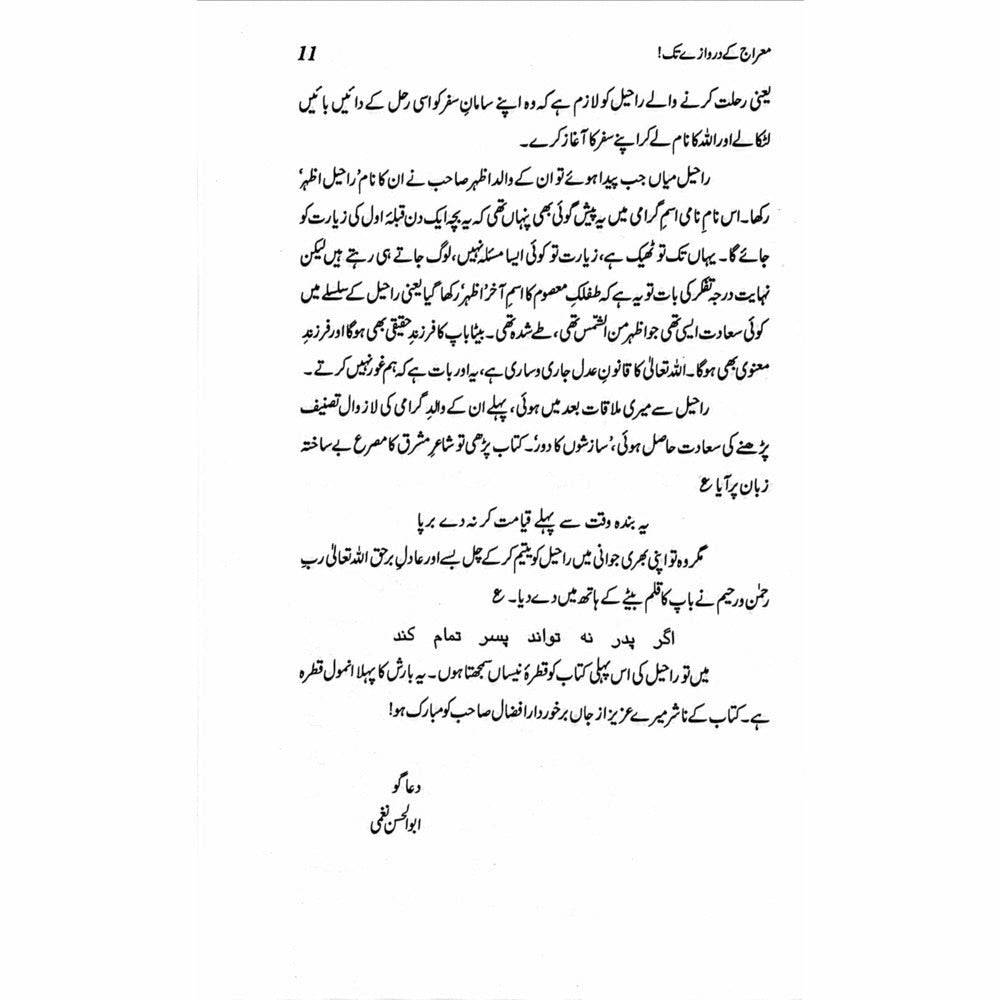 معراج کے دروازے تک! 11
یعنی رحلت کرنے والے راحیل کو لازم ہے کہ وہ اپنے سامانِ سفر کو اسی رحل کے دائیں بائیں
لٹکا لے اور اللہ کا نام لے کر اپنے سفر کا آغاز کرے۔
راحیل میاں جب پیدا ہوئے تو ان کے والد اظہر صاحب نے ان کا نام ’راحیل اظہر‘
رکھا۔ اس نامِ نامی اسمِ گرامی میں یہ پیش گوئی بھی پنہاں تھی کہ یہ بچہ ایک دن قبلۂ اول کی زیارت کو
جائے گا۔ یہاں تک تو ٹھیک ہے، زیارت تو کوئی ایسا مسئلہ نہیں، لوگ جاتے ہی رہتے ہیں لیکن
نہایت درجہ تفکر کی بات تو یہ ہے کہ طفلکِ معصوم کا اسمِ آخر ’اظہر‘ رکھا گیا یعنی راحیل کے سلسلے میں
کوئی سعادت ایسی تھی جو اظہر من الشمس تھی، طے شدہ تھی۔ بیٹا باپ کا فرزندِ حقیقی بھی ہوگا اور فرزندِ
معنوی بھی ہوگا۔ اللہ تعالیٰ کا قانونِ عدل جاری و ساری ہے، یہ اور بات ہے کہ ہم غور نہیں کرتے۔
راحیل سے میری ملاقات بعد میں ہوئی، پہلے ان کے والدِ گرامی کی لازوال تصنیف
پڑھنے کی سعادت حاصل ہوئی، ’سازشوں کا دور‘۔ کتاب پڑھی تو شاعرِ مشرق کا مصرع بے ساختہ
زبان پر آیا ع
یہ بندہ وقت سے پہلے قیامت کر نہ دے برپا
مگر وہ تو اپنی بھری جوانی میں راحیل کو یتیم کر کے چل بسے اور عادلِ برحق اللہ تعالیٰ ربِ
رحمٰن و رحیم نے باپ کا قلم بیٹے کے ہاتھ میں دے دیا۔ ع
اگر پدر نہ تواند پسر تمام کند
میں تو راحیل کی اس پہلی کتاب کو قطرۂ نیساں سمجھتا ہوں۔ یہ بارش کا پہلا انمول قطرہ
ہے۔ کتاب کے ناشر میرے عزیز از جاں برخوردار افضال صاحب کو مبارک ہو!
دعا گو
ابوالحسن نغمی